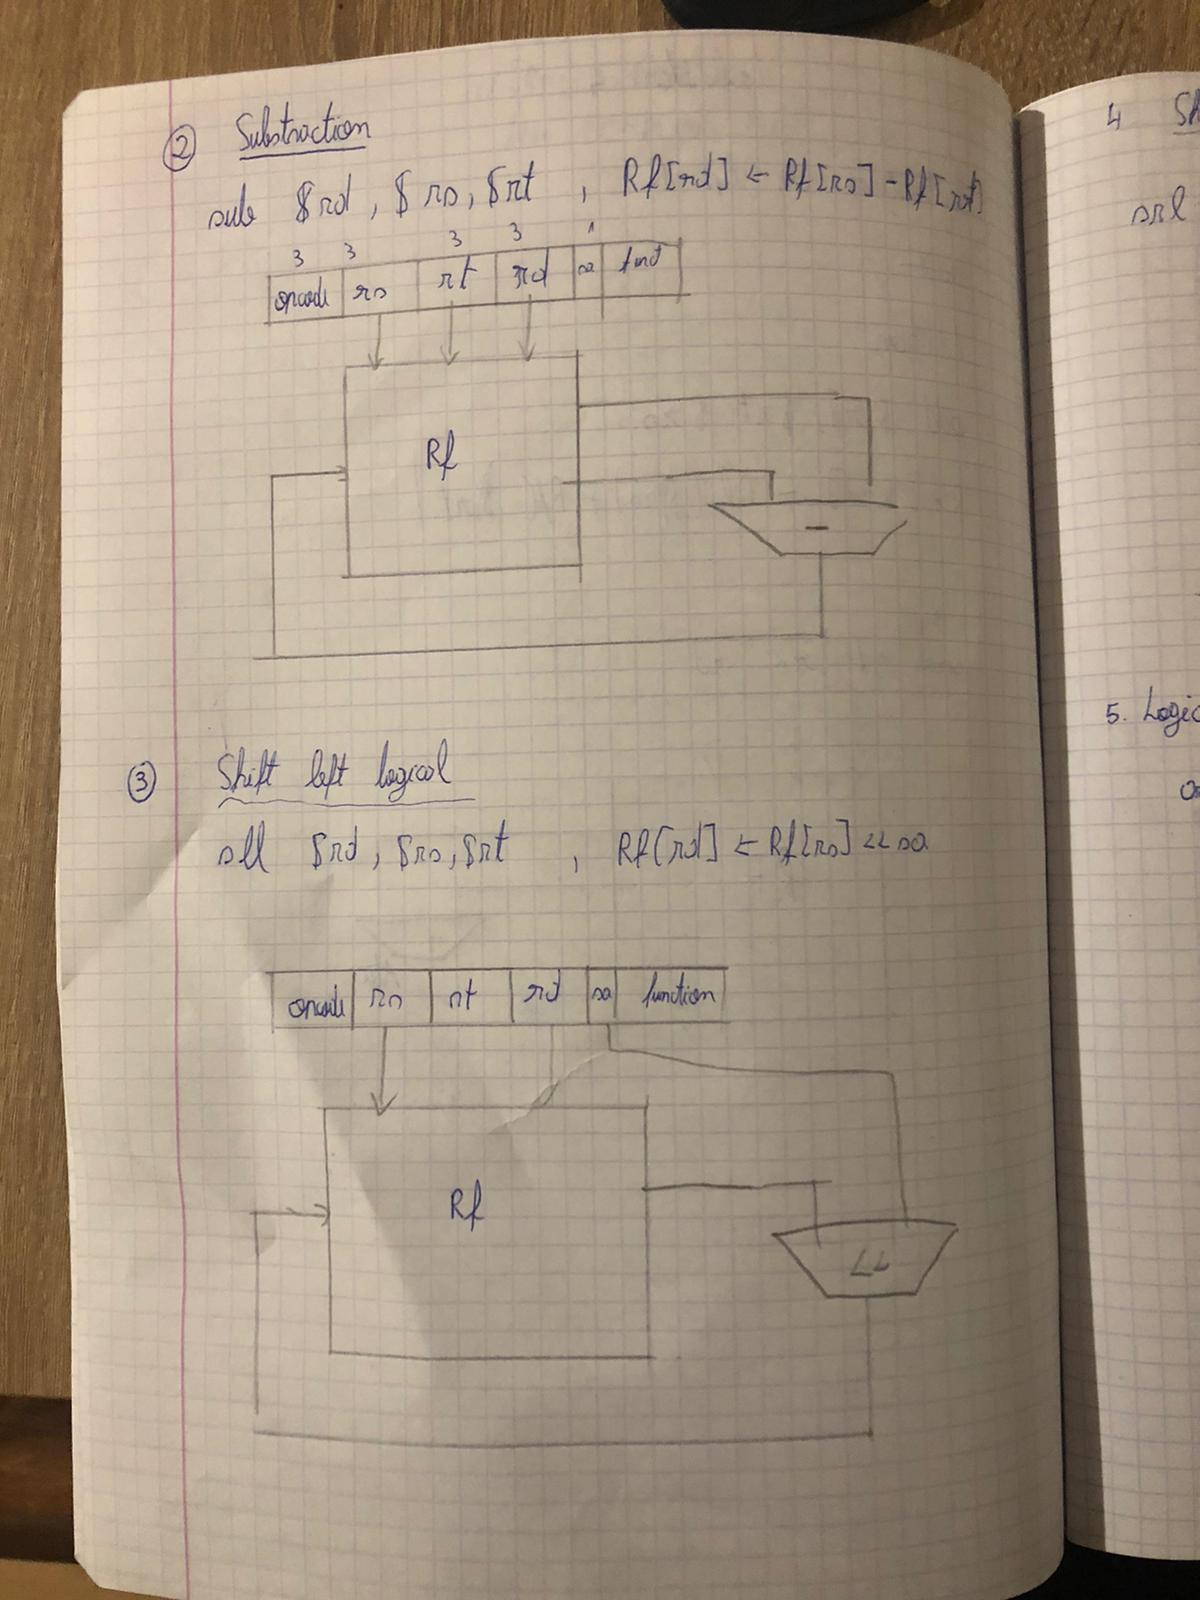 ② Substraction
sub $rd, $rs, $rt , Rf[rd] ← Rf[rs] - Rf[rt]
3 3 3 3 1
opcode rs rt rd sa funct
Rf
-
③ Shift left logical
sll $rd, $rs, $rt , Rf[rd] ← Rf[rs] << sa
opcode rs rt rd sa function
Rf
<<
4 Sh
srl
5. Logic